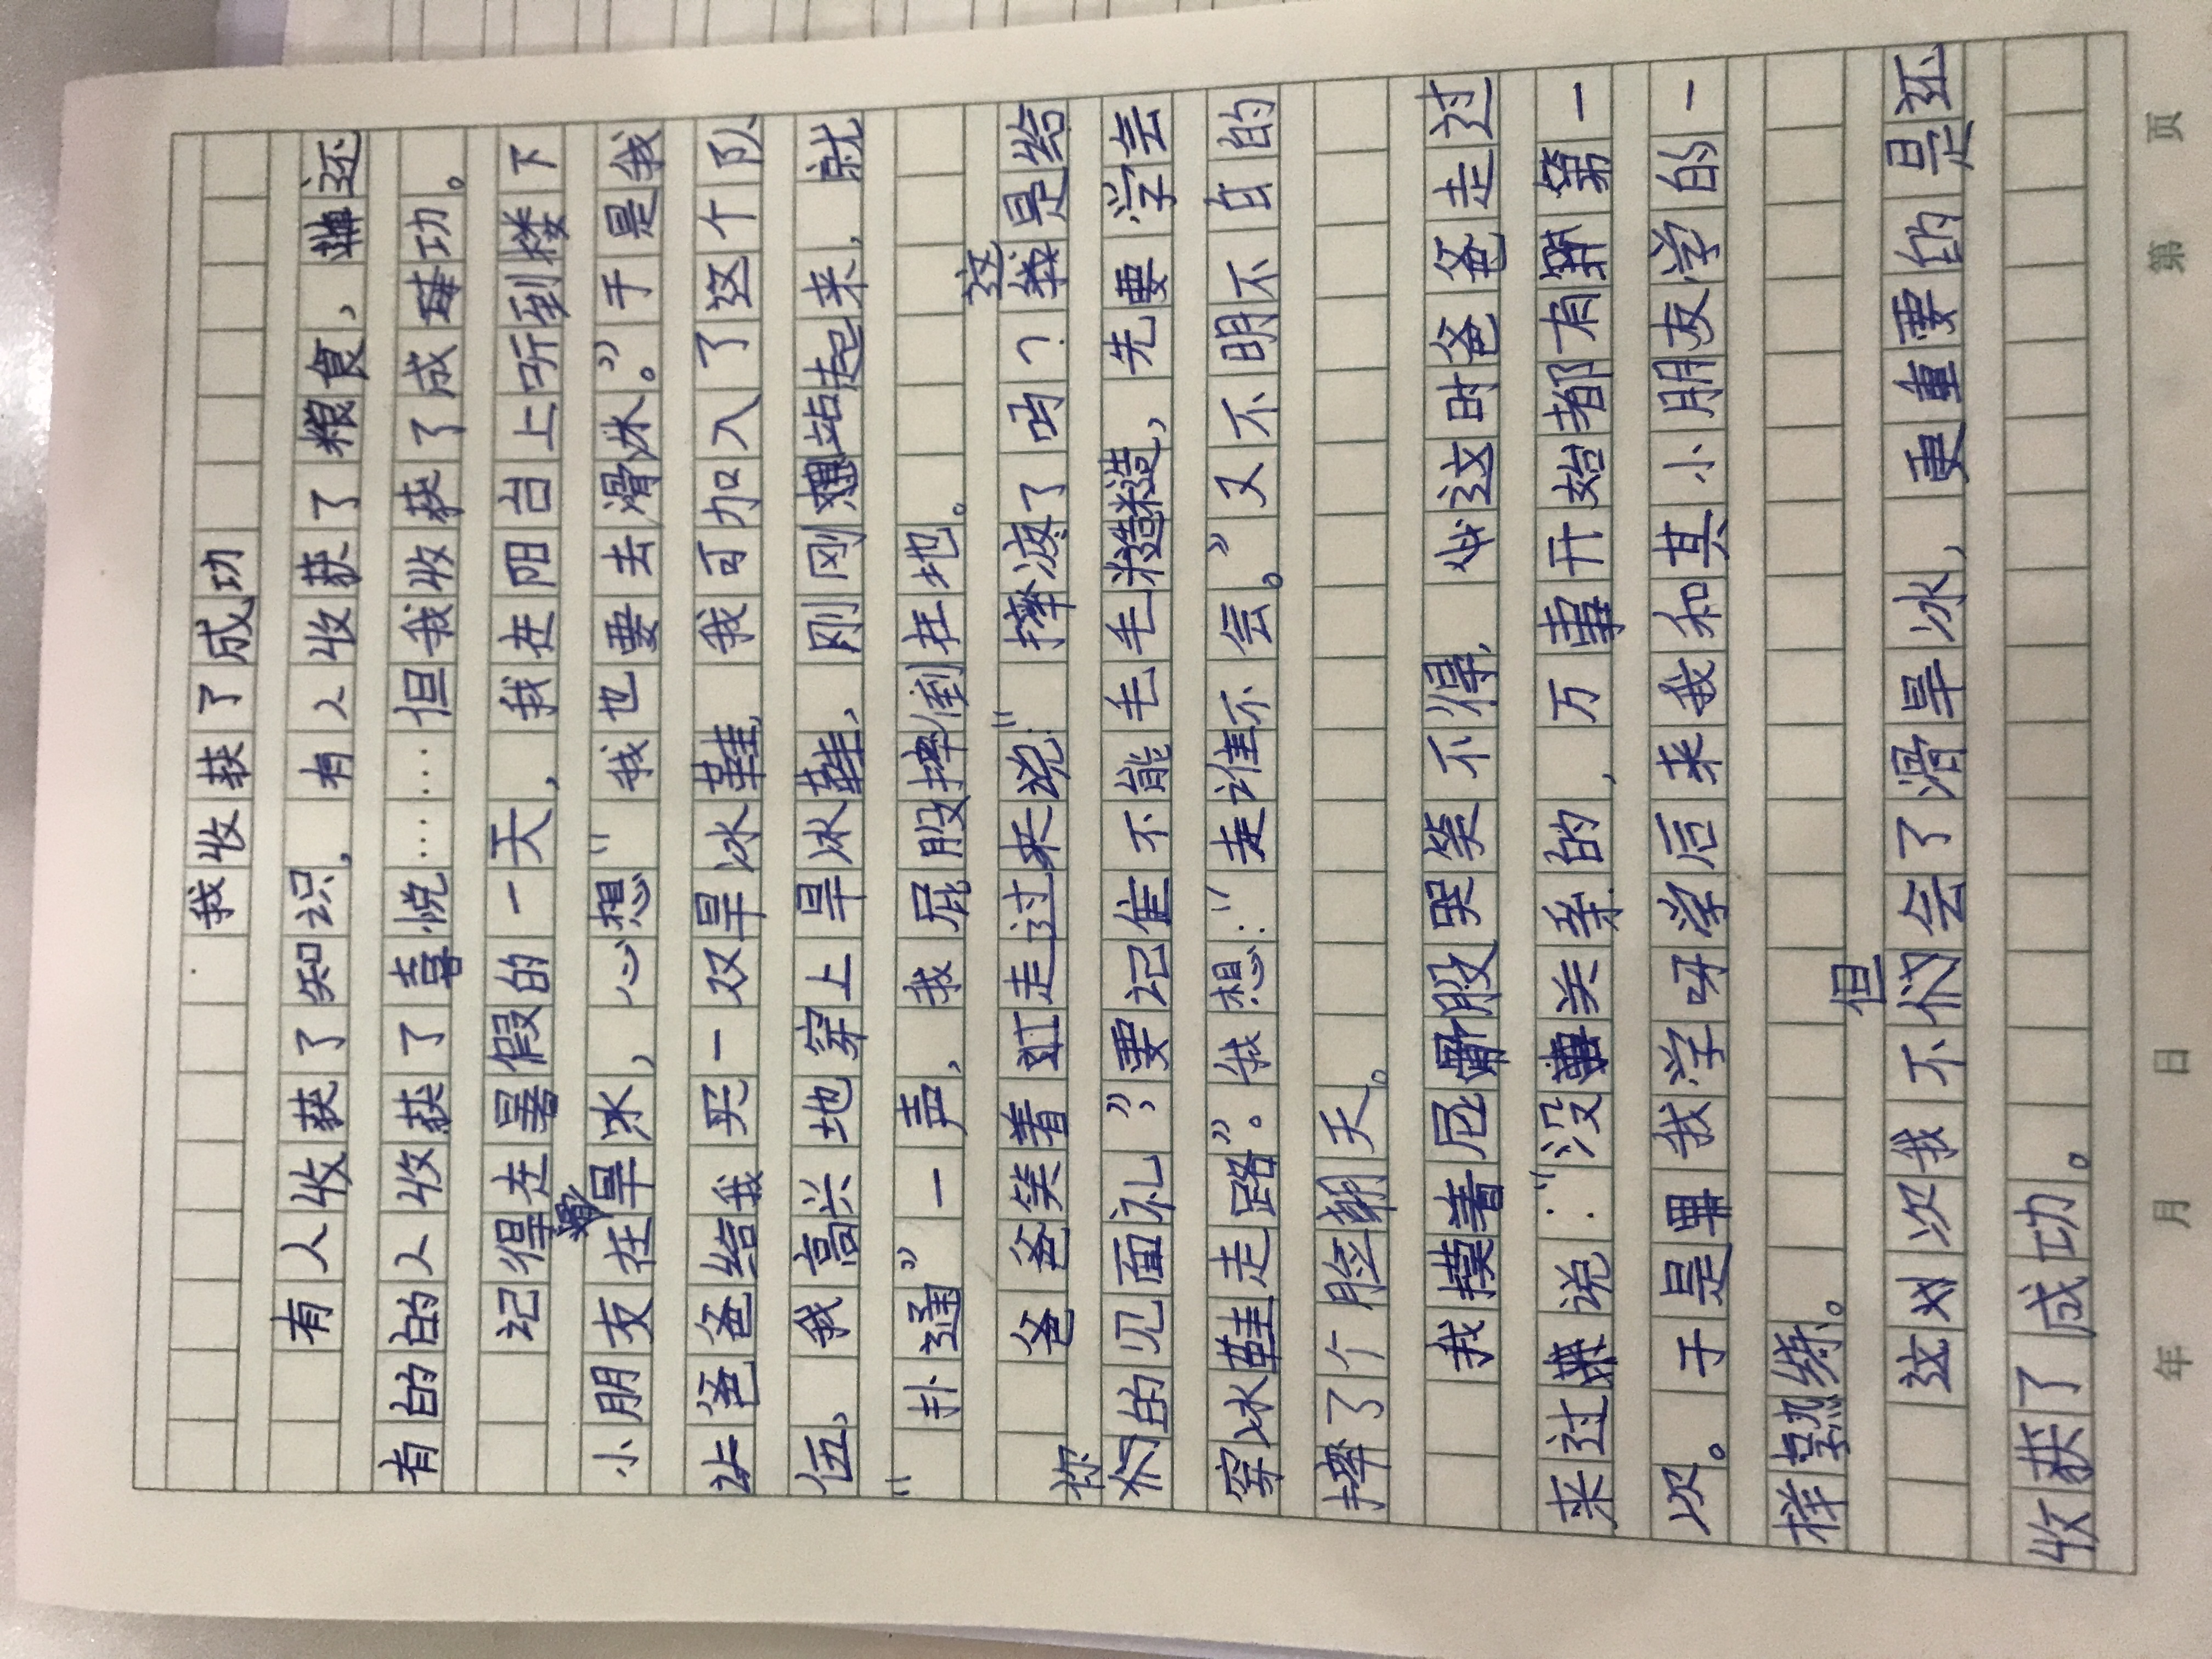 我收获了成功
有人收获了知识，有人收获了粮食，还
有的的人收获了喜悦……但我收获了成功。
记得在暑假的一天，我在阳台上听到楼下
小朋友在滑旱冰，心想"我也要去滑冰。"于是我
让爸爸给我买一双旱冰鞋，我可加入了这个队
伍，我高兴地穿上旱冰鞋，刚刚站起来，就
"扑通"一声，我屁股摔倒在地。
爸爸笑着走过来说："摔疼了吗？这是给
你们的见面礼"，要记住不能毛毛糙糙，先要学会
穿冰鞋走路"。我想："走谁不会。"又不明不白的
摔了个脸朝天。
我摸着屁股哭笑不得，这时爸爸走过
来过说："没关系的，万事开始都有第一
次。于是我学呀学后来我和其小朋友学的一
样熟练。
这次我不但会了滑旱冰，更重要的是还
收获了成功。
年 月 日 第 页